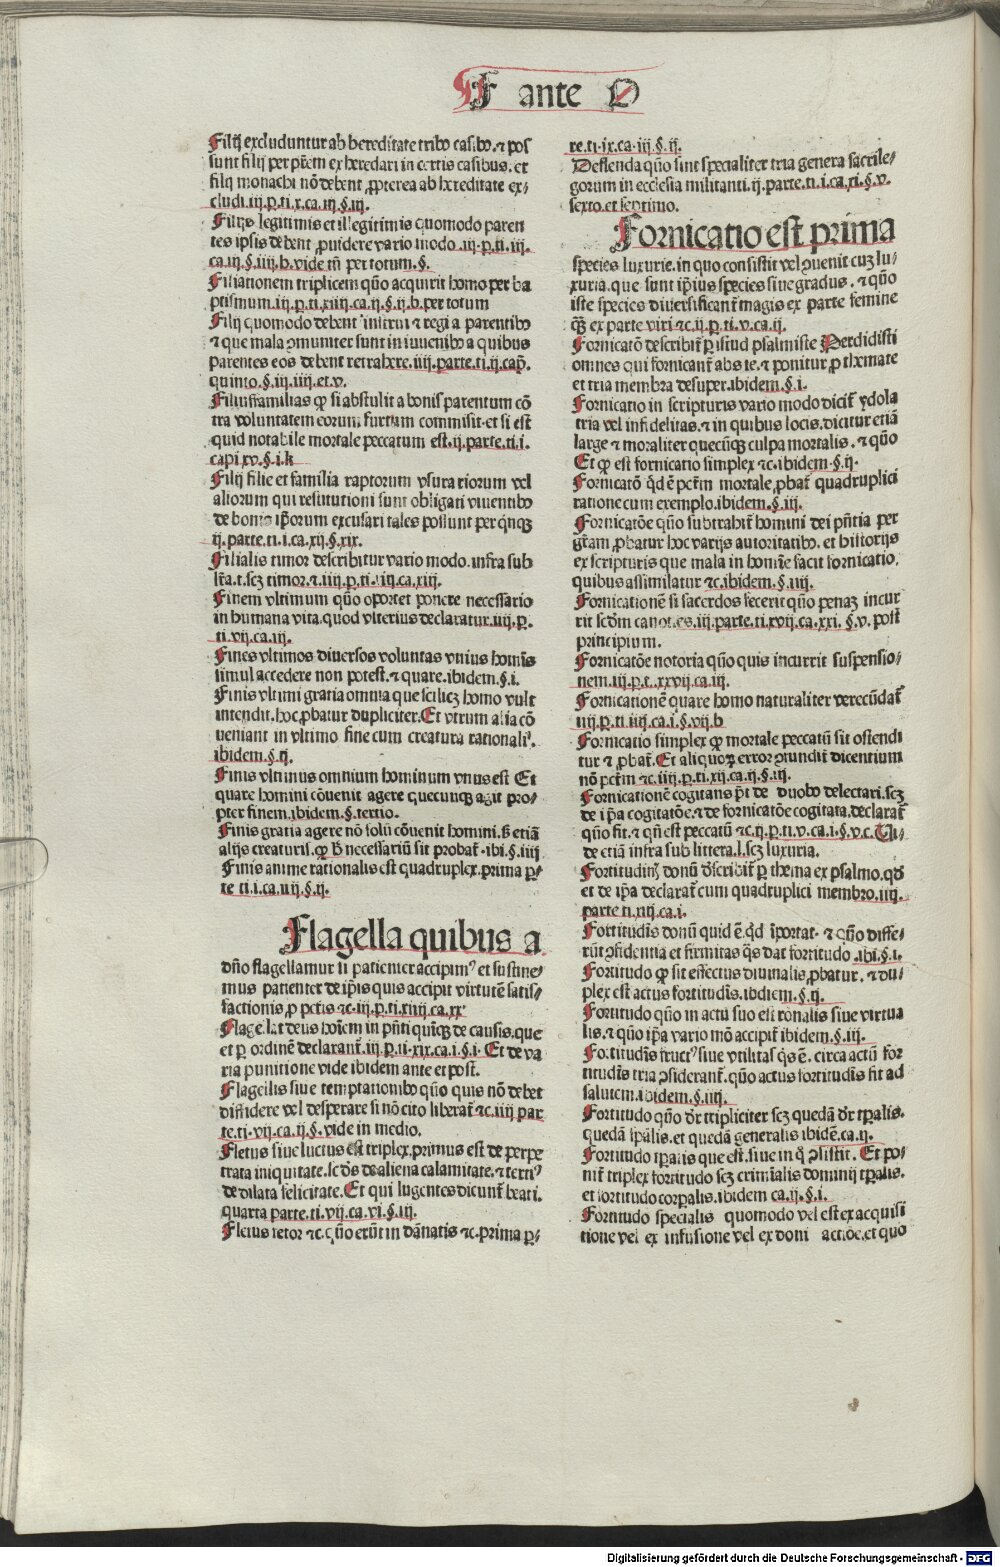 F ante O
Filij excluduntur ab hereditate tribꝰ casibꝰ. ⁊ pos
sunt filij per pr̄em exheredari in certis casibus. et
filij monachi nō debent ꝓpterea ab hereditate ex⸗
cludi. iii. p. ti. x. ca. iij. §. iij.
Filijs legitimis et illegitimis quomodo paren
tes ipsis debent ꝓuidere vario modo. iij. p. ti. iii.
ca. iij. §. iiij. b. vide tn̄ per totum. §.
Filiationem triplicem quō acquirit homo per ba
ptismum. iij. p. ti. xiiij. ca. ij. §. ij. b. per totum
Filij quomodo debent instrui ⁊ regi a parentibꝰ
⁊ que mala ꝯmuniter sunt in iuuenibꝰ a quibus
parentes eos debent retrahere. iiij. parte. ti. ij. cap̄.
quinto. §. iij. iiij. et. v.
Filiusfamilias qꝛ si abstulit a bonis parentum cō
tra voluntatem eorum furtum commisit. et si est
quid notabile mortale peccatum est. ij. parte. ti. i.
capi xv. §. i. k
Filij filie et familia raptorum vsurariorum vel
aliorum qui restitutioni sunt obligati viuentibꝰ
de bonis ip̄orum excusari tales possunt per qn̄qꝫ
ij. parte. ti. i. ca. xij. §. xix.
Filialis timor describitur vario modo. infra sub
lr̄a. t. scꝫ timor. ⁊. iiij. p. ti. ca. xiij.
Finem vltimum quō oportet ponere necessario
in humana vita. quod vlterius declaratur. iiij. p.
ti. vij. ca. iij.
Fines vltimos diuersos voluntas vnius homīs
simul accedere non potest. ⁊ quare. ibidem. §. i.
Finis vltimi gratia omnia que scilicꝫ homo vult
intendit. hoc ꝓbatur dupliciter. Et vtrum alia cō
ueniant in vltimo fine cum creatura rationali.
ibidem. §. ij.
Finis vltimus omnium hominum vnus est Et
quare homini cōuenit agere quecunqꝫ agit pro⸗
pter finem. ibidem. §. tertio.
Finis gratia agere nō solū cōuenit homini. sꝫ etiā
alijs creaturis. qꝛ hͦ necessariū sit probat̄. ibi. §. iiij
Finis anime rationalis est quadruplex. prima p̲⸗
te ti. i. ca. viij. §. ij.
Flagella quibus a
dn̄o flagellamur si patienter accipimꝰ et sustine⸗
mus patienter de ip̄is quis accipit virtutē satis⸗
factionis ꝓ pctīs ⁊c. iij. p. ti. xiiij ca. xx
Flagellat deus hoīem in pn̄ti quīqꝫ de causis. que
et p̲ ordinē declarant̄. iij. p. ti. xix. ca. i. §. i. Et de va
ria punitione vide ibidem ante et post.
Flagellis siue temptationibꝰ quō quis nō debet
diffidere vel desperare si nō cito liberat̄ ⁊c. iiij par
te. ti. vij. ca. ij. §. vide in medio.
Fletus siue luctus est triplex. primus est de perpe
trata iniquitate. scd̄s de aliena calamitate. ⁊ tertiꝰ
de dilata felicitate. Et qui lugentes dicunt̄ beati.
quarta parte. ti. vij. ca. vi. §. iij.
Fletus fetor ⁊c. quō erūt in dānatis ⁊c. prima p̲⸗
re. ti. ix. ca. iij. §. ij.
Deflenda quō sint specialiter tria genera sacrile⸗
gorum in ecclesia militanti. ij. parte. ti. i. ca. xi. §. v.
sexto. et septimo.
Fornicatio est prima
species luxurie. in quo consistit vel ꝯuenit cuꝫ lu⸗
xuria. que sunt ip̄ius species siue gradus. ⁊ quō
iste species diuersificant̄ magis ex parte femine
qꝫ ex parte viri ⁊c. ij. p. ti. v. ca. ij.
Fornicatō describit̄ p̲ istud psalmiste Perdidisti
omnes qui fornicant̄ abs te. ⁊ ponitur ꝓ themate
et tria membra desuper. ibidem. §. i.
Fornicatio in scripturis vario modo dicit̄ ydola
tria vel infidelitas. ⁊ in quibus locis. dicitur etiā
large ⁊ moraliter quecūqꝫ culpa mortalis. ⁊ quō
Et qꝛ est fornicatio simplex ⁊c. ibidem. §. ij.
Fornicatō qd̓ ē pctm̄ mortale. ꝓbat̄ quadruplici
ratione cum exemplo. ibidem. §. iij.
Fornicatōe quō subtrahit̄ homini dei pn̄tia per
gr̄am ꝓbatur hoc varijs autoritatibꝰ. et historijs
ex scripturis que mala in homīe facit fornicatio.
quibus assimilatur ⁊c. ibidem. §. iiij.
Fornicationē si sacerdos fecerit quō penaꝫ incur
rit scd̄m canones. iij. parte. ti. xvij. ca. xxi. §. v. post
principium.
Fornicatōe notoria quō quis incurrit suspensio⸗
nem. iij. p. t. xxvij. ca. iij.
Fornicationē quare homo naturaliter verecūdat̄
iiij. p. ti. iiij. ca. i. §. vij. b
Fornicatio simplex qꝛ mortale peccatū sit ostendi
tur ⁊ ꝓbat̄. Et aliquoꝝ error ꝯfundit̄ dicentium
nō pctm̄ ⁊c. iiij. p. ti. xij. ca. ij. §. iij.
Fornicationē cogitans p̄t de duobꝰ delectari. scꝫ
de ip̄a cogitatōe. ⁊ de fornicatōe cogitata. declarat̄
quō fit. ⁊ qn̄ est peccatū ⁊c. ij. p. ti. v. ca. i. §. v. c. Vi⸗
de etiā infra sub littera. l. scꝫ luxuria.
Fortitudinis donū describit̄ p̲ thema ex psalmo. qd̓
et de ip̄a declarat̄ cum quadruplici membro. iiij.
parte ti. xiij. ca. i.
Fortitudīs donū quid ē. qd̓ īportat. ⁊ quō diffe⸗
rūt ꝯfidentia et firmitas q̄s dat fortitudo. ibi. §. i.
Fortitudo qꝛ sit effectus diuinalis ꝓbatur. ⁊ du⸗
plex est actus fortitudīs. ibidem. §. ij.
Fortitudo quō in actu suo est ronalis siue virtua
lis. ⁊ quō ip̄a vario mō accipit̄ ibidem. §. iij.
Fortitudīs fructꝰ siue vtilitas qs̄ ē. circa actū for
titudīs tria ꝯsiderant̄. quō actus fortitudīs fit ad
salutem. ibidem. §. iiij.
Fortitudo quō dr̄ tripliciter scꝫ quedā dr̄ tp̄alis.
quedā sp̄alis. et quedā generalis ibidē. ca. ij.
Fortitudo tp̄alis que est. siue in qͦ ꝯsistit. Et po⸗
nit̄ triplex fortitudo scꝫ crimīalis dominij tp̄alis.
et fortitudo corp̄alis. ibidem ca. ij. §. i.
Fortitudo specialis quomodo vel est ex acquisi
tione vel ex infusione vel ex doni actiōe. et quo
Digitalisierung gefördert durch die Deutsche Forschungsgemeinschaft - DFG